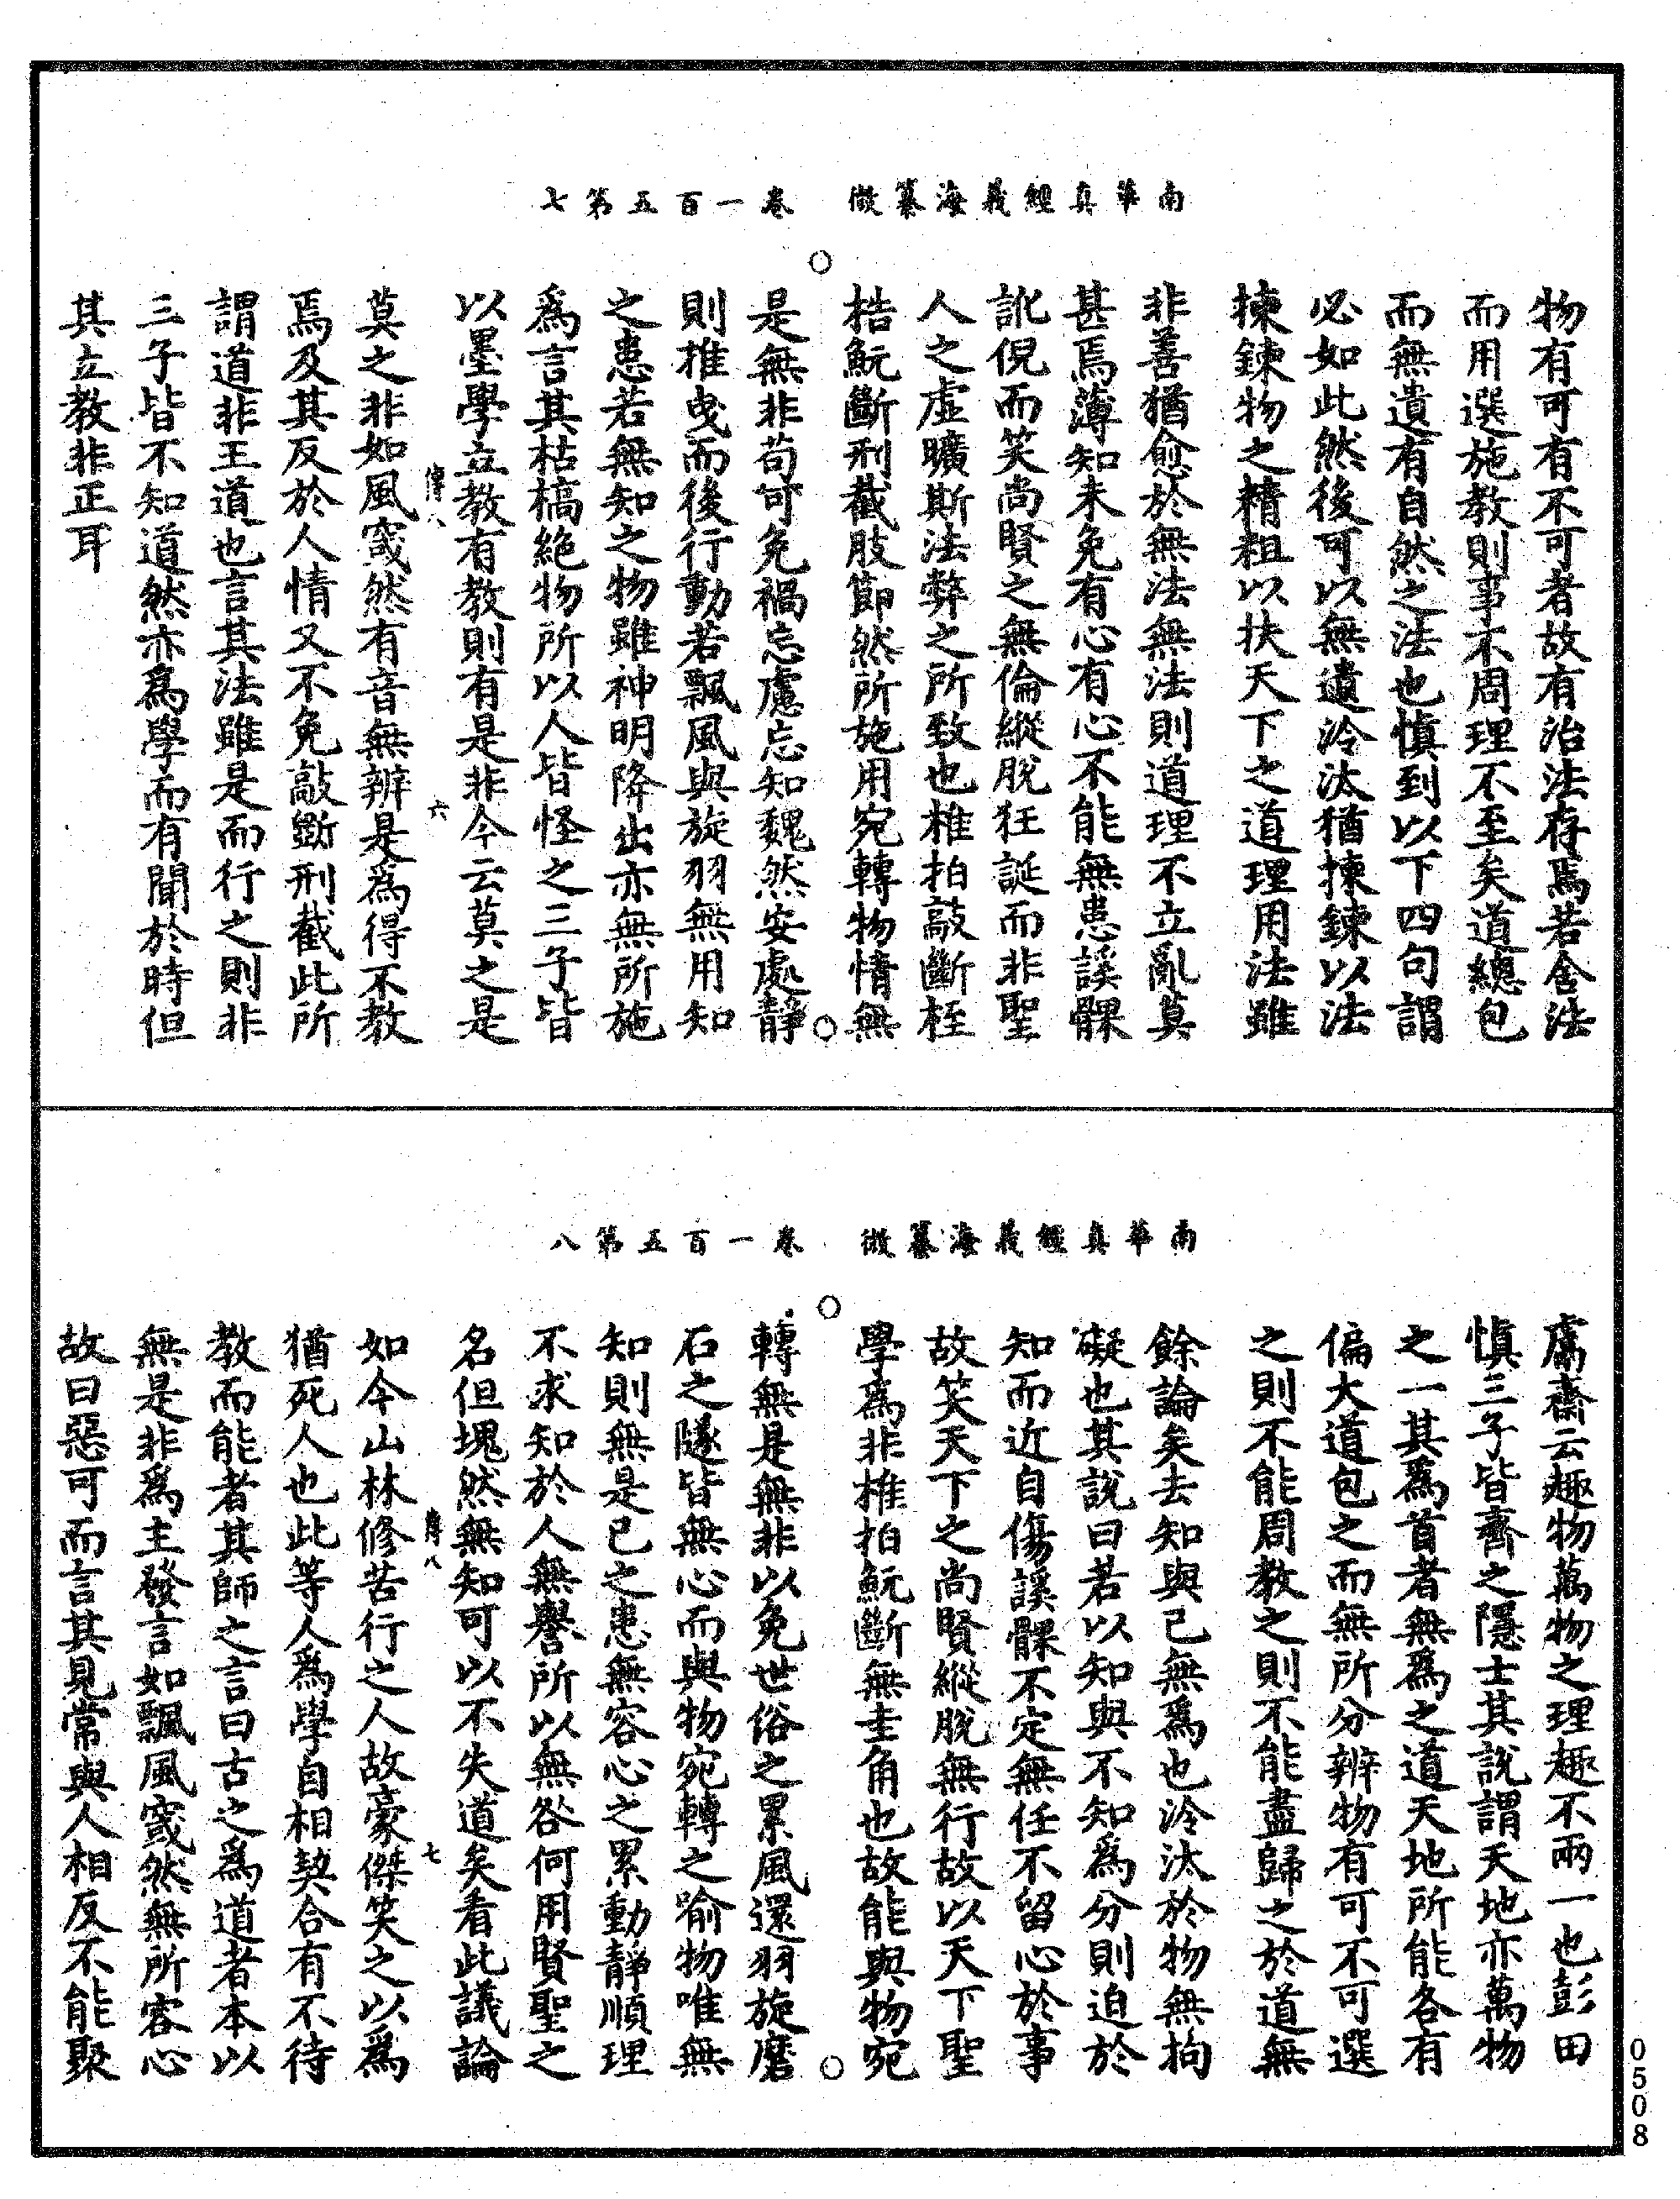 南華真經義海纂微　卷一百五第七
物有可有不可者故有治法存焉若舍法
而用選施教則事不周理不至矣道總包
而無遺有自然之法也慎到以下四句謂
必如此然後可以無遺泠汰猶揀鍊以法
揀鍊物之精粗以扶天下之道理用法雖
非善猶愈於無法無法則道理不立亂莫
甚焉薄知未免有心有心不能無患謑髁
訛倪而笑尚賢之無倫縱脫狂誕而非聖
人之虛曠斯法弊之所致也椎拍敲斷桎
梏魭斷刑截肢節然所施用宛轉物情無
是無非苟可免禍忘慮忘知魏然安處靜
則推曳而後行動若飄風與旋羽無用知
之患若無知之物雖神明降出亦無所施
爲言其枯槁絕物所以人皆怪之三子皆
以墨學立教有教則有是非今云莫之是
傳八　六
莫之非如風窢然有音無辨是爲得不教
焉及其反於人情又不免敲斷刑截此所
謂道非王道也言其法雖是而行之則非
三子皆不知道然亦爲學而有聞於時但
其立教非正耳
南華真經義海纂微　卷一百五第八
鬳齋云趣物萬物之理趣不兩一也彭田
慎三子皆齊之隱士其說謂天地亦萬物
之一其爲首者無爲之道天地所能各有
偏大道包之而無所分辨物有可不可選
之則不能周教之則不能盡歸之於道無
餘論矣去知與已無爲也泠汰於物無拘
礙也其說曰若以知與不知爲分則迫於
知而近自傷謑髁不定無任不留心於事
故笑天下之尚賢縱脫無行故以天下聖
學爲非椎拍魭斷無圭角也故能與物宛
轉無是無非以免世俗之累風還羽旋磨
石之隧皆無心而與物宛轉之喻物唯無
知則無是已之患無容心之累動靜順理
不求知於人無譽所以無咎何用賢聖之
名但塊然無知可以不失道矣看此議論
傳八　七
如今山林修苦行之人故豪傑笑之以爲
猶死人也此等人爲學自相契合有不待
教而能者其師之言曰古之爲道者本以
無是非爲主發言如飄風窢然無所容心
故曰惡可而言其見常與人相反不能聚
0508